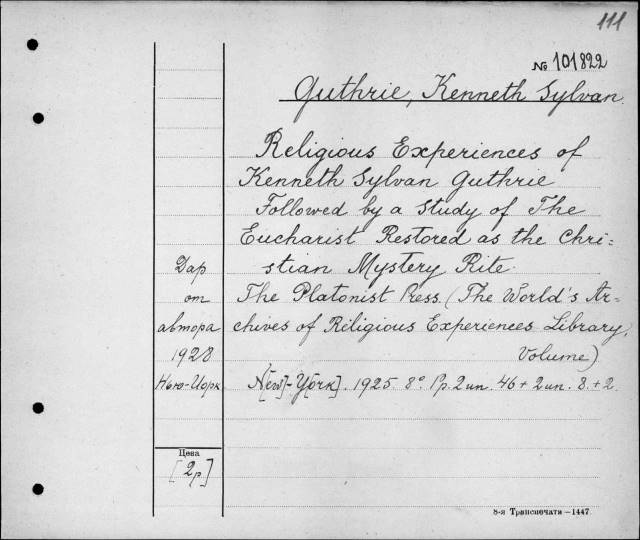 111
№ 101822
Guthrie, Kenneth Sylvan.
Religious Experiences of
Kenneth Sylvan Guthrie
Followed by a Study of The
Eucharist Restored as the Chri=
stian Mystery Rite.
The Platonist Press. (The World's Ar-
chives of Religious Experiences Library,
Volume)
N[ew]-Y[ork]. 1925. 8° Pp. 2 un. 46 + 2 un. 8. + 2.
Дар
от
автора
1928
Нью-Иорк
Цена
[2р]
8-я Транспечати—1447.